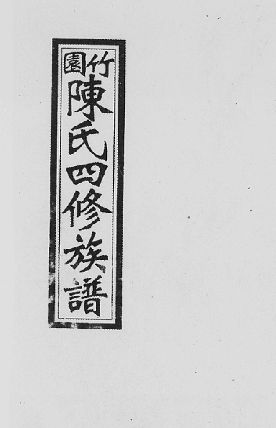 竹園
陳氏四修族譜